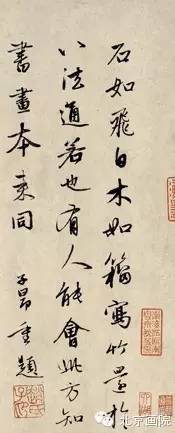 石如飛白木如籀寫竹還於
八法通若也有人能會此方知
書畫本來同
子昂重題
趙氏子昂
北京画院